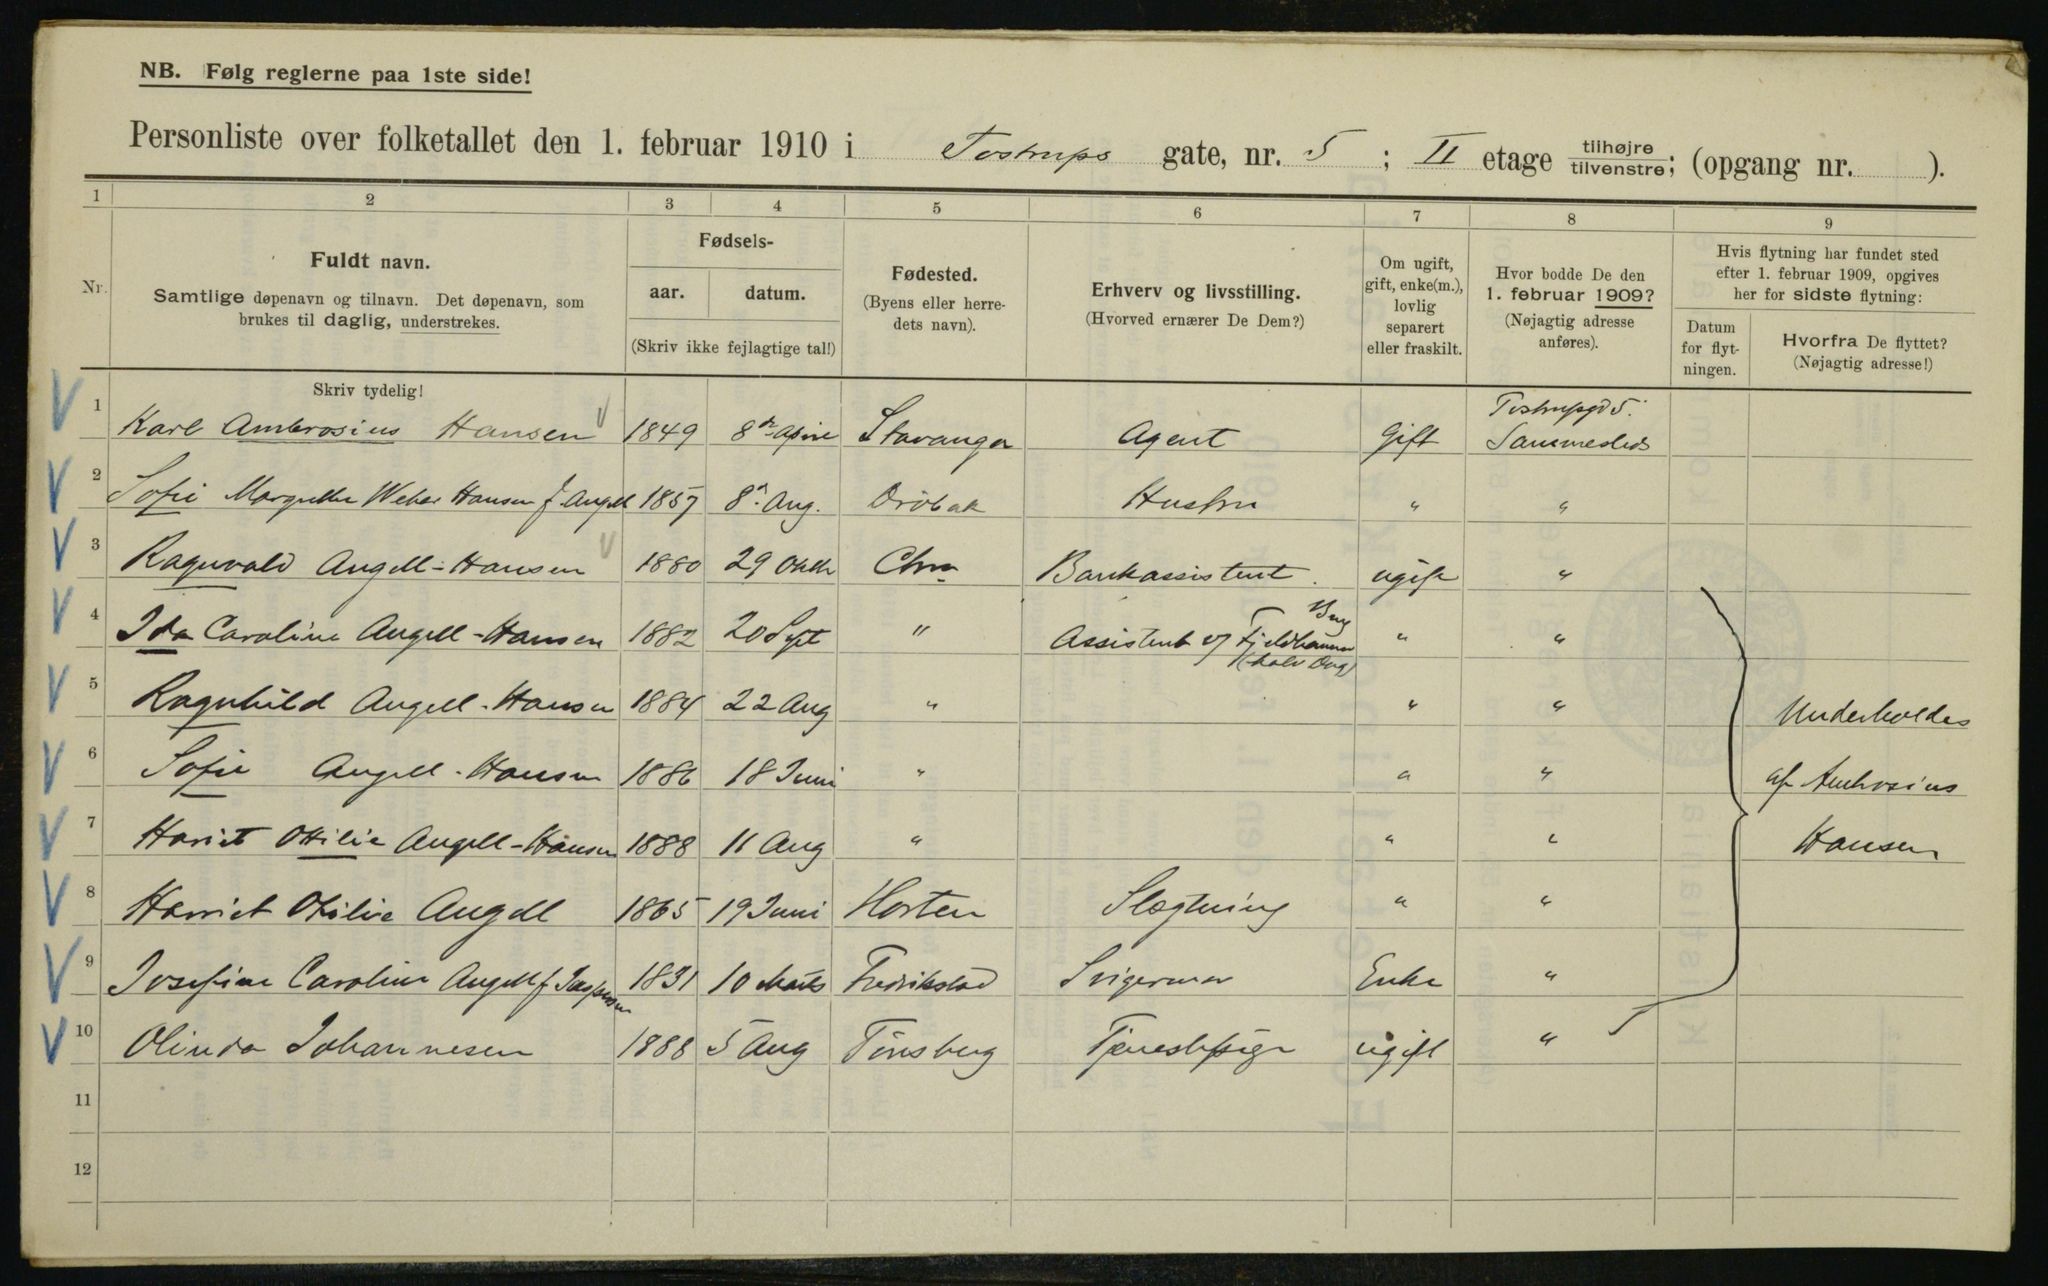 NB. Følg reglerne paa 1ste side!
Personliste over folketallet den 1. februar 1910 i Tostrups gate, nr. 5 ; II etage tilhøjre tilvenstre; (opgang nr. ).
1 2 3 4 5 6 7 8 9
Nr.
Fuldt navn.
Samtlige døpenavn og tilnavn. Det døpenavn, som
brukes til daglig, understrekes.
Skriv tydelig!
Fødsels-
aar. datum.
(Skriv ikke fejlagtige tal!)
Fødested.
(Byens eller herre-
dets navn).
Erhverv og livsstilling.
(Hvorved ernærer De Dem?)
Om ugift,
gift, enke(m.),
lovlig
separert
eller fraskilt.
Hvor bodde De den
1. februar 1909?
(Nøjagtig adresse
anføres).
Hvis flytning har fundet sted
efter 1. februar 1909, opgives
her for sidste flytning:
Datum
for flyt-
ningen.
Hvorfra De flyttet?
(Nøjagtig adresse!)
Tostrupgd 5.
1 Karl Ambrosius Hansen 1849 8de April Stavanger Agent Gift Sammesteds
2 Sofie Margrethe Weber Hansen f. Angell 1857 8de Aug. Drøbak Hustru " "
3 Ragnvald Angell-Hansen 1880 29 Oktb Chra Bankassistent. ugift "
4 Ida Caroline Angell-Hansen 1882 20 Sept " Assistent v/ Fjeldhammer Brug " "
(halv Dag)
5 Ragnhild Angell-Hansen 1884 22 Aug " " " Underholdes
6 Sofie Angell-Hansen 1886 18 Juni " " " af Ambrosius
7 Harriet Otilie Angell-Hansen 1888 11 Aug " " " Hansen
8 Harriet Otilie Angell 1865 19 Juni Horten Slægtning " "
9 Josefine Caroline Angell f. Jaspersen 1831 10 Marts Fredrikstad Svigermor Enke "
10 Olinda Johannesen 1888 5 Aug Tönsberg Tjenestepige ugift "
11
12